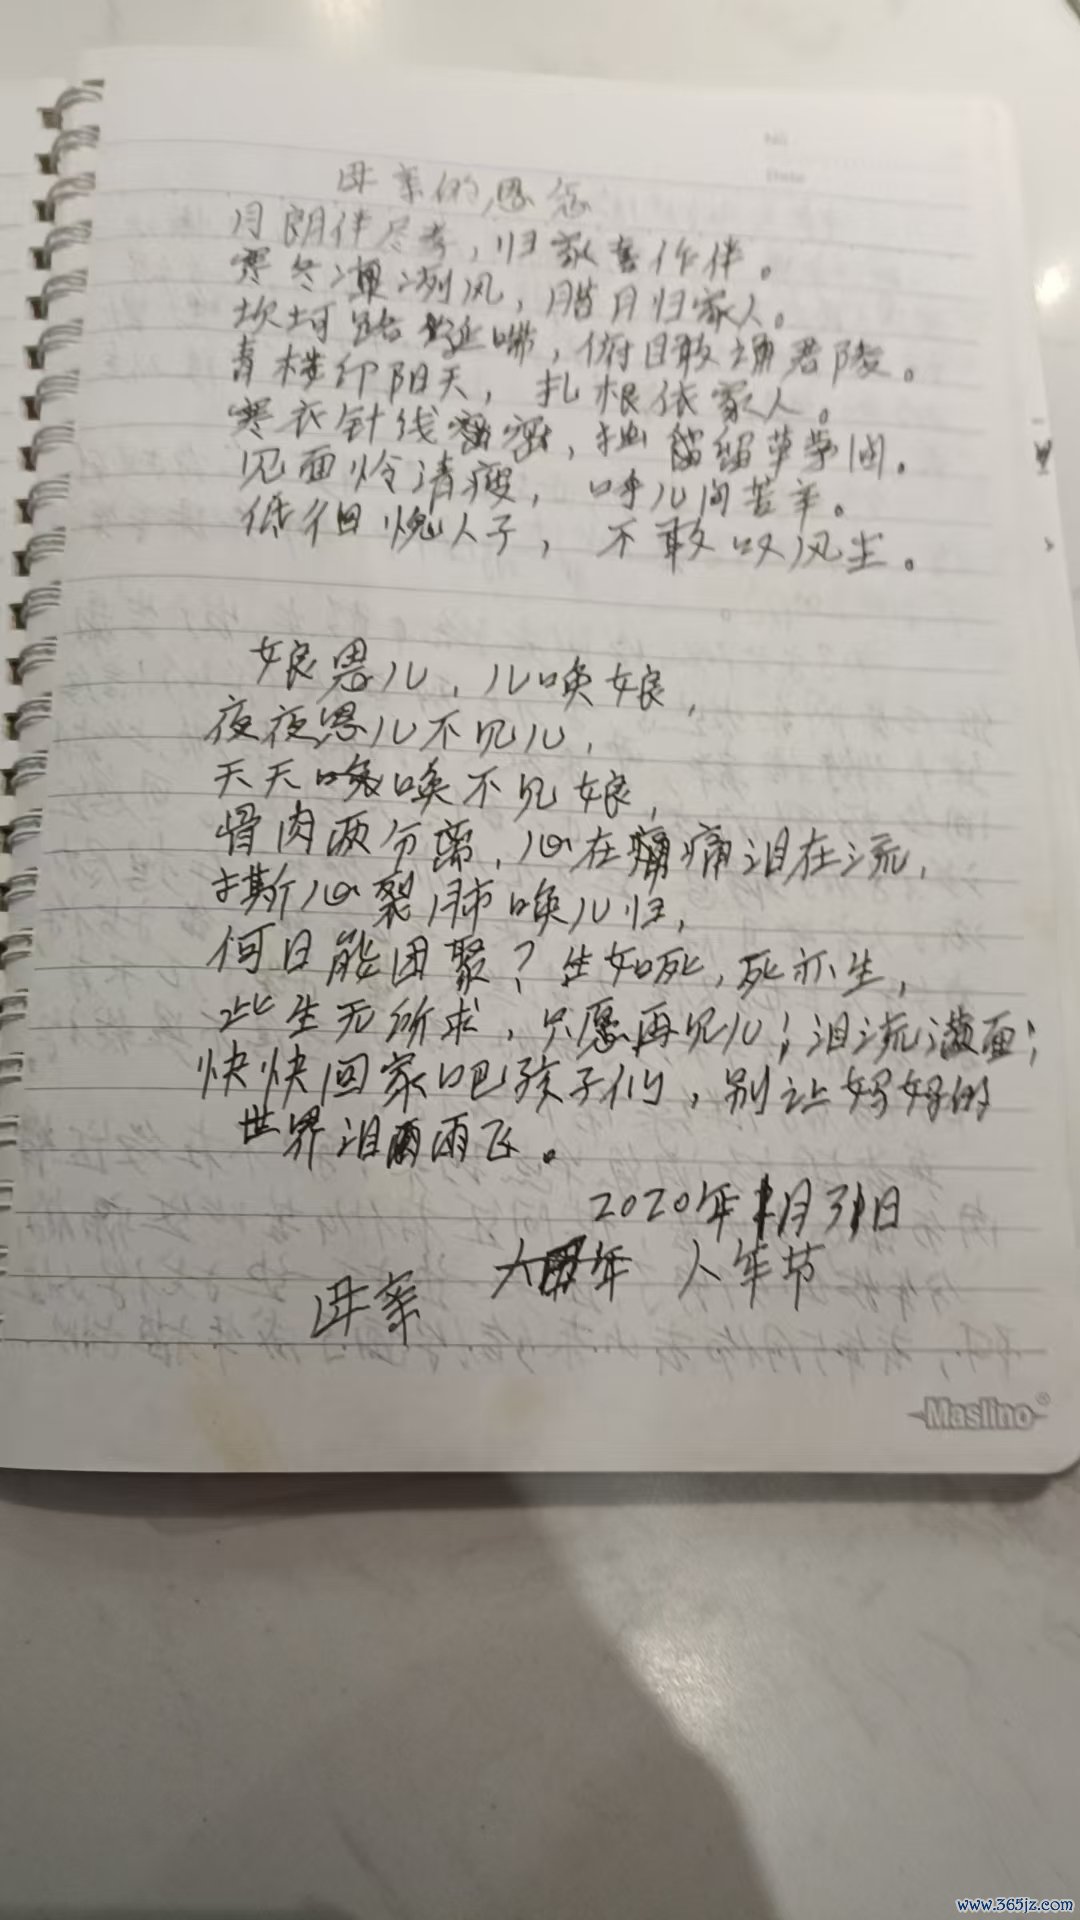 母亲的恩怨
月朗伴尽孝，归家喜作伴。
寒冬凛冽风，腊月归家人。
坎坷路喘，俯目敢涌君陵。
青楼印阳天，扎根依家人。
寒衣针线密密，拙留留草茅间。
见面怜清瘦，呼儿问苦辛。
低徊愧人子，不敢叹风尘。
娘思儿，儿唤娘，
夜夜思儿不见儿，
天天唤唤不见娘，
骨肉两分离，心在痛痛泪在流，
撕心裂肺唤儿归，
何日能团聚？生如死，死亦生，
此生无所求，只愿再见儿；泪流满面；
快快回家吧孩子们，别让妈妈的
世界泪雨雨飞。
2020年1月31日
人年节
母亲
Maslino
www.365jz.com